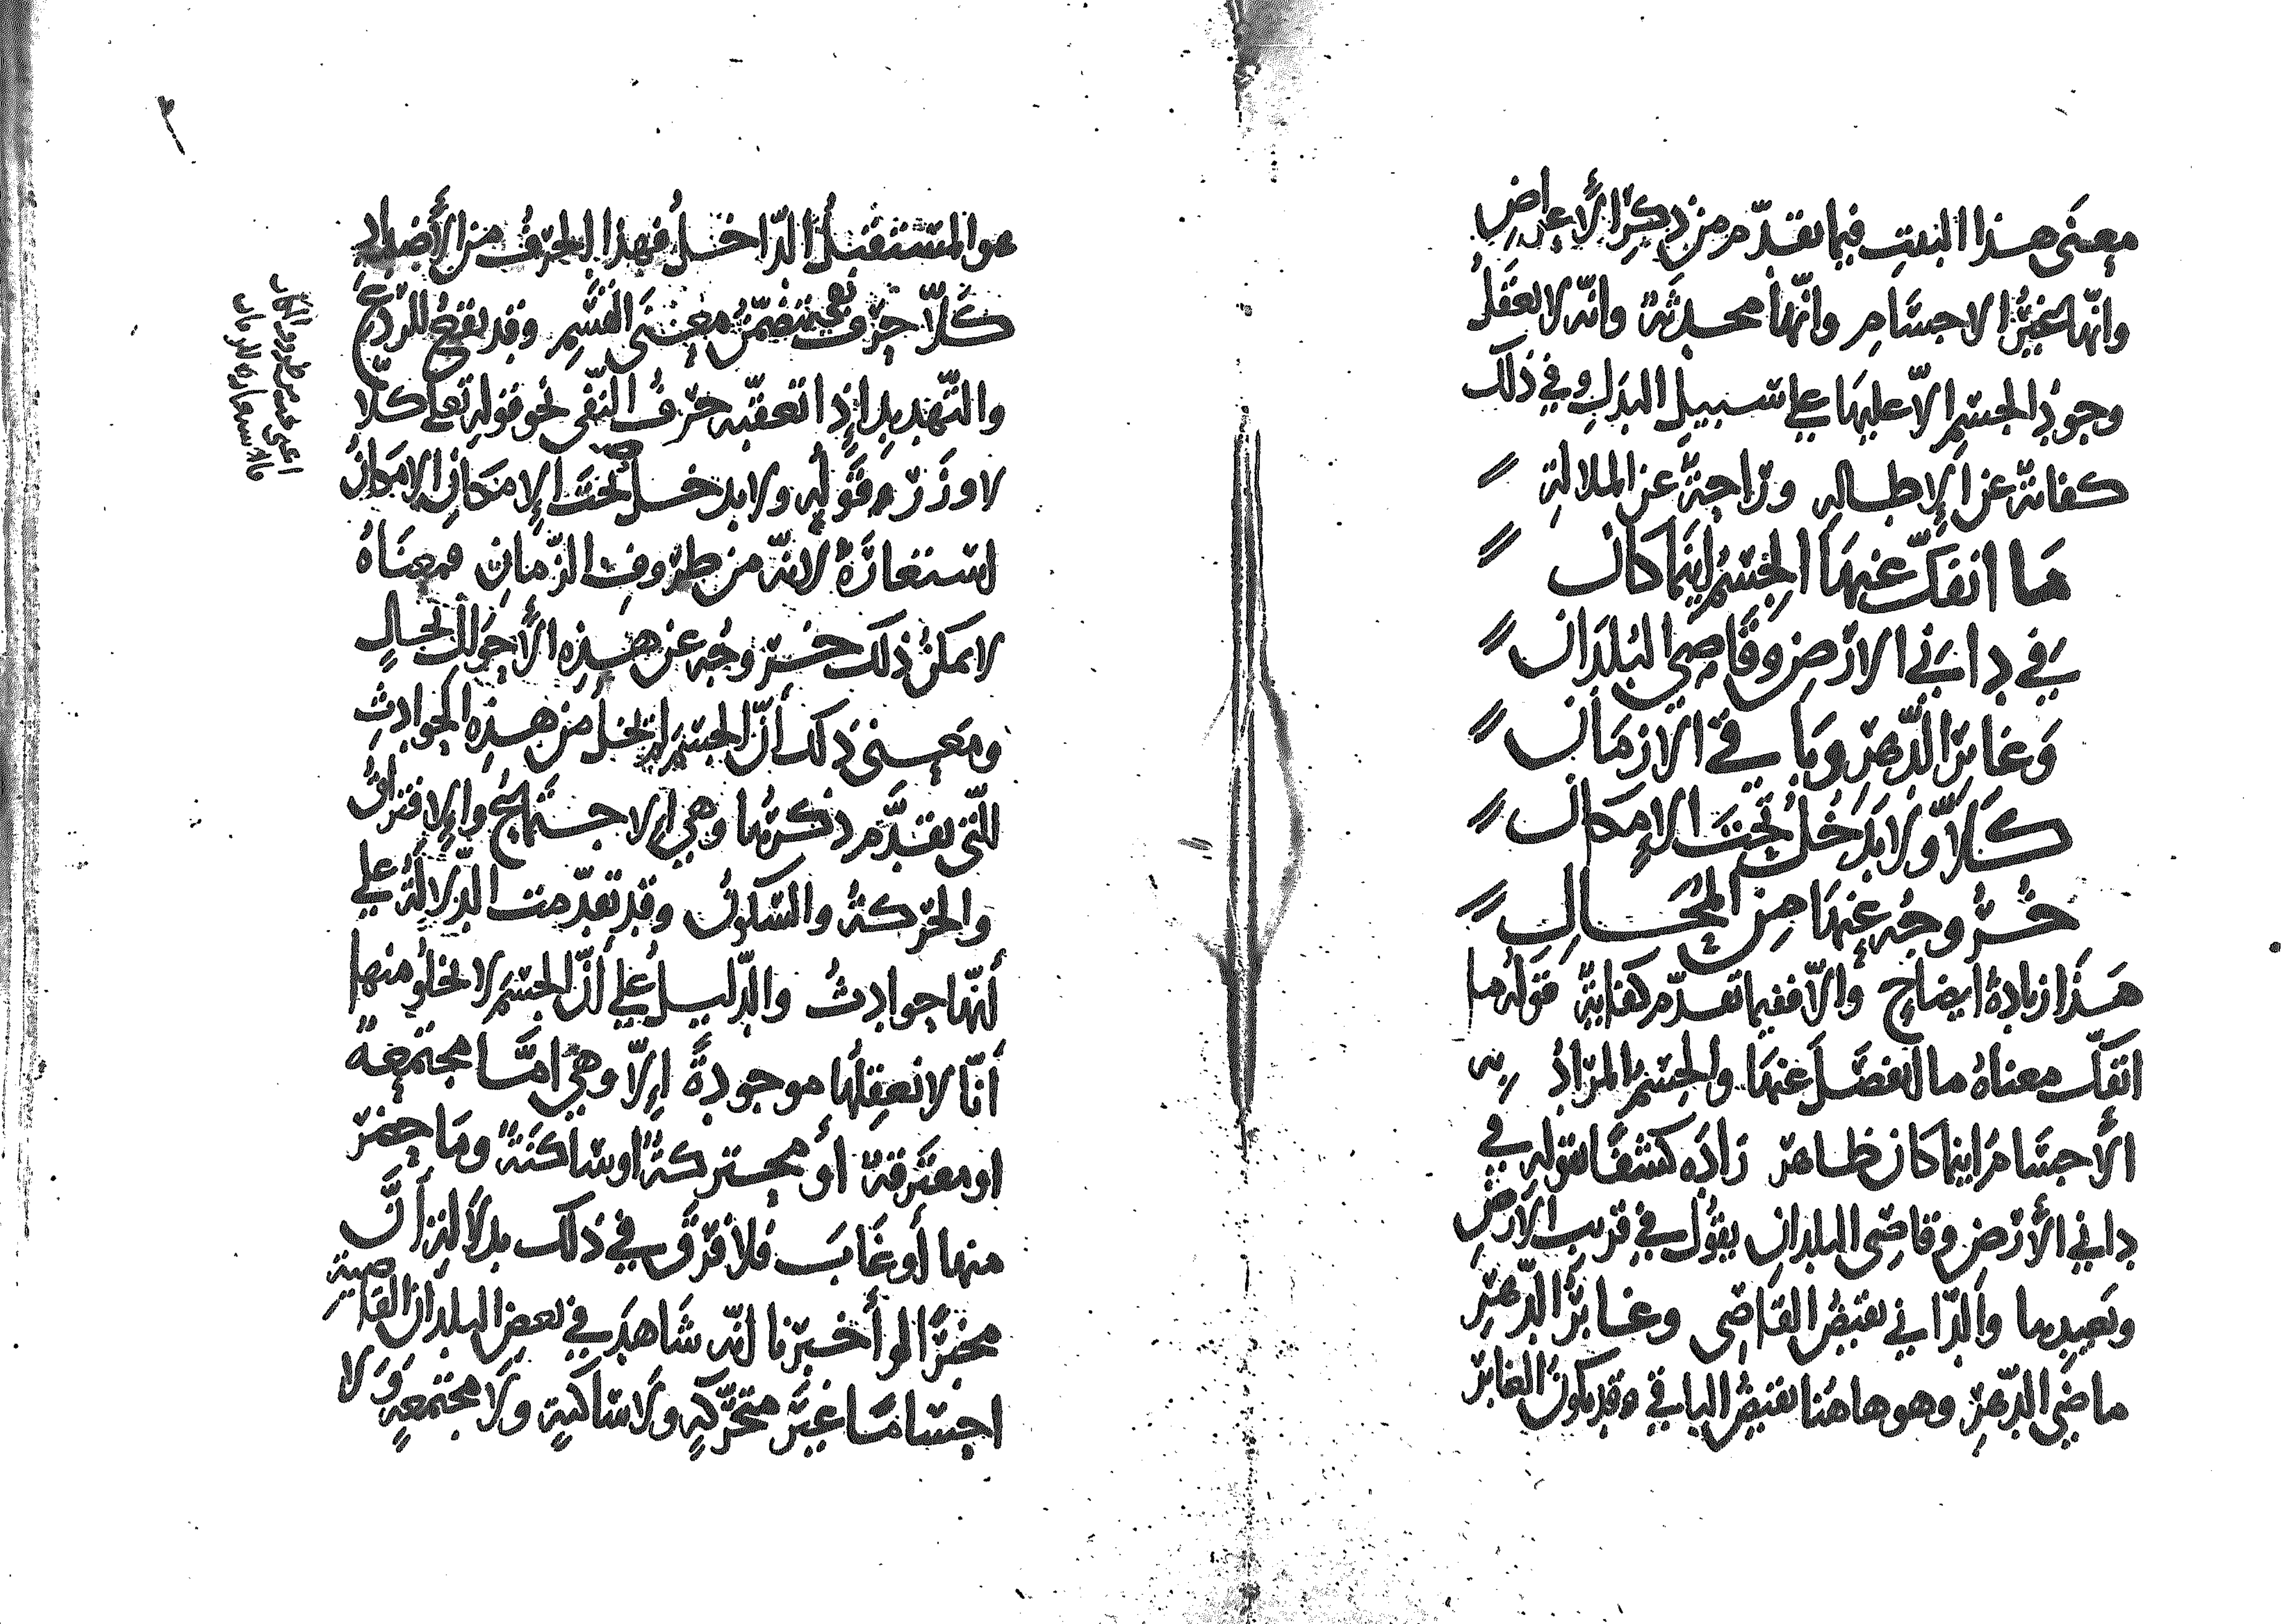 معنى هذا البيت فيما تقدّم من ذكر الأعراض
وانّها غير الاجسام وانّها محدثة وانّه لا يعقل
وجود الجسم الّا عليها على سبيل البدل وفي ذلك
كفاية عن الإطالة وراحة عن الملالة
مَا انفكّ عنها الجسم اينما كان
في داني الارض وقاصي البلدان
وغابر الدّهر وباقي الازمان
كلّا ولا يدخل تحت الإمكان
خروجه عنها من المحال
هذا زيادة ايضاح وإلّا ففيما تقدّم كفاية قوله ما
انفكّ معناه ما انفصل عنها والجسم المراد به
الأجسام اينما كان ظاهر زاده كشفا بقوله في
داني الأرض وقاصي البلدان يقول في قريب الارض
وبعيدها والدّاني نقيض القاصي وغابر الدّهر
ماضي الدّهر وهو هاهنا نقيض الباقي وقد يكون الغابر
هو المستقبل الدّاخل فهذا الحرف من الأضداد
كلّا حرف نفي يتضمّن معنى القسم وقد تقع للردع
والتّهديد إذا تعقبه حرف النّفي نحو قوله تعالى كلّا
لا وزر وقوله ولا يدخل تحت الإمكان الامكان
استعارة لانّه من ظروف الزّمان فمعناه
لا يمكن ذلك خروجه عن هذه الأحوال بحال
ومعنى ذلك أنّ الجسم لم يخل من هذه الحوادث
الّتي تقدّم ذكرها وهي الاجتماع والإفتراق
والحركة والسكون وقد تقدّمت الدّلالة على
أنّها حوادث والدّليل على أنّ الجسم لا يخلو منها
أنّا لا نعقلها موجودة إلّا وهي امّا مجتمعة
او مفترقة أو محتركة او ساكنة وما حضر
منها أو غاب فلا فرق في ذلك بدلالة أنّ
مخبرًا لو أخبرنا انّه شاهد في بعض البلدان القاصية
اجساما غير متحرّكة ولا ساكنة ولا مجتمعة ولا